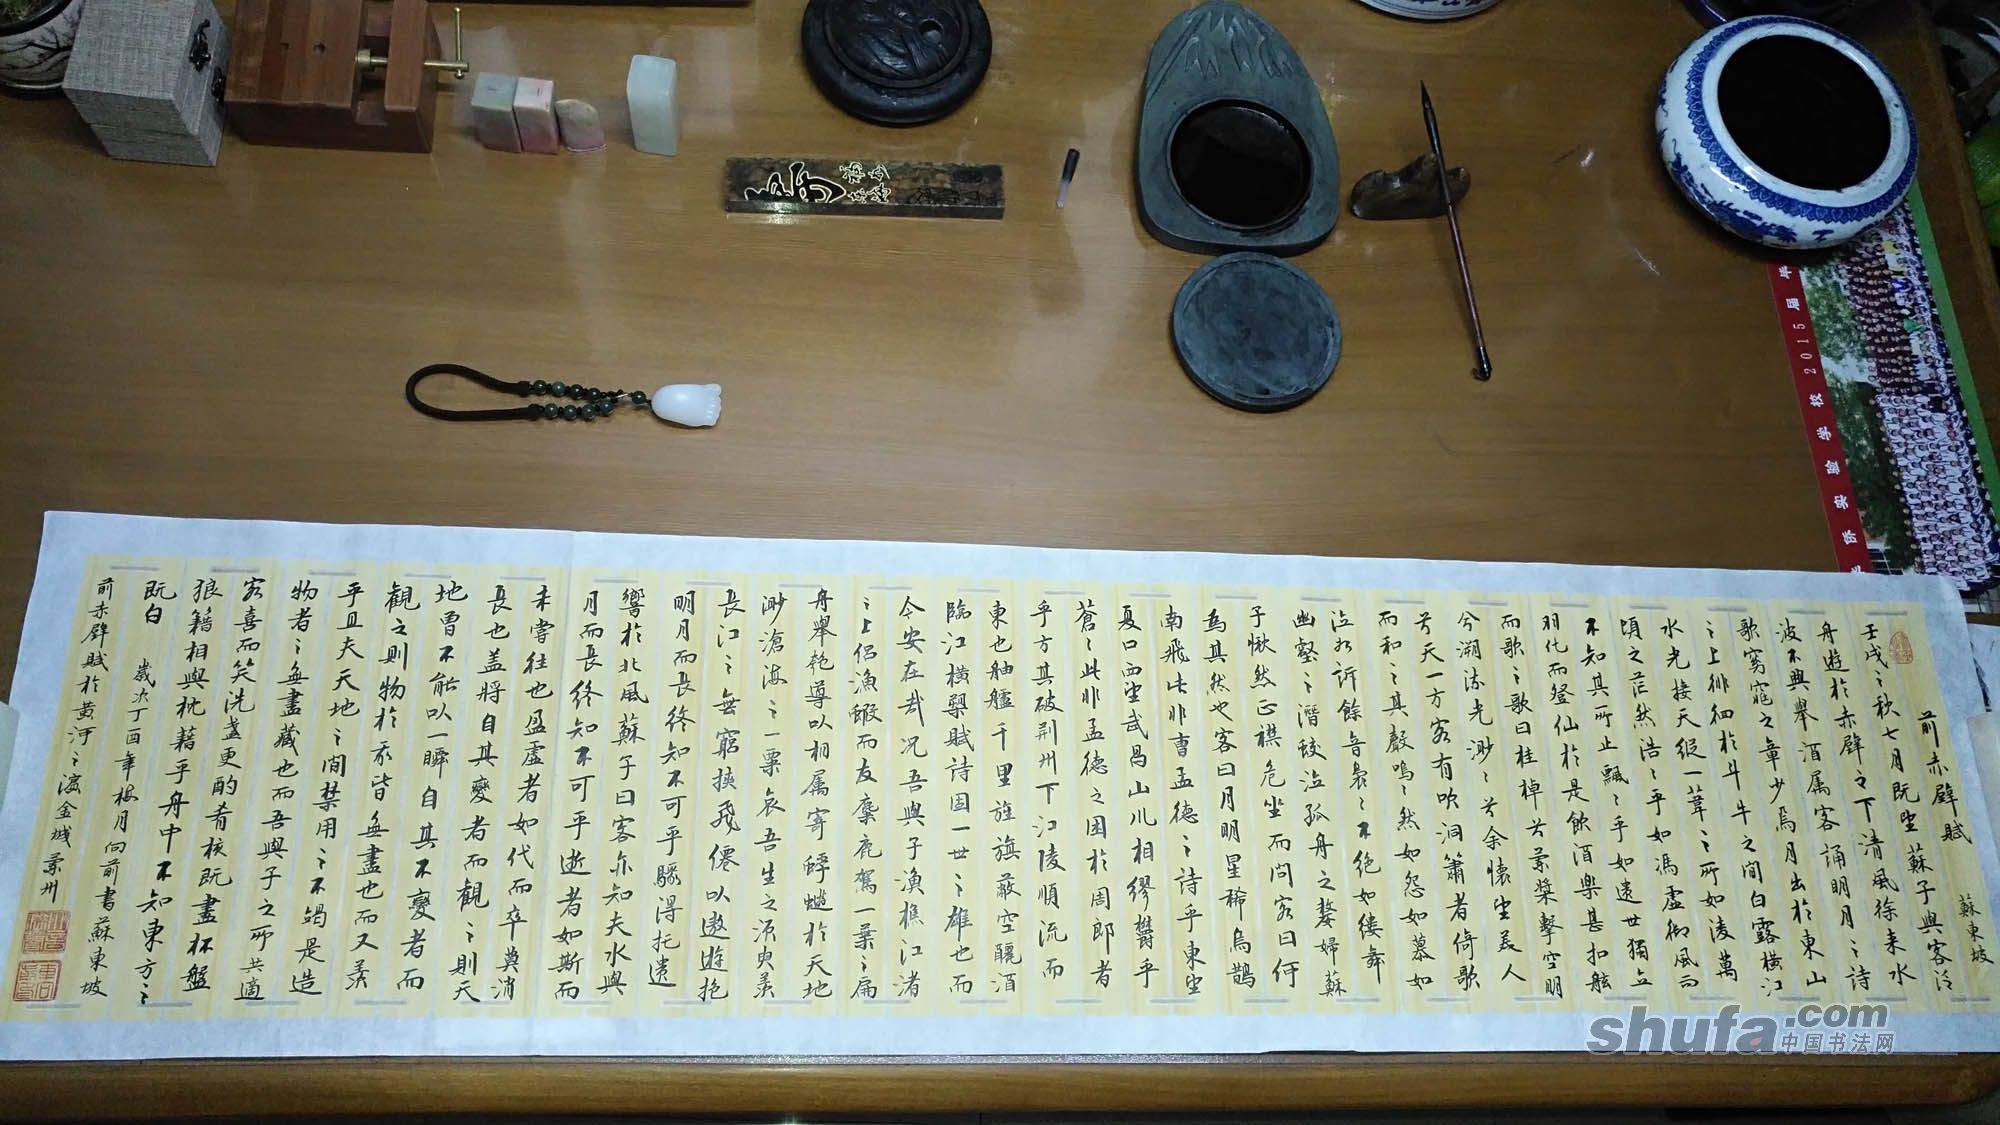 前赤壁賦 蘇東坡
壬戌之秋七月既望蘇子與客泛
舟遊於赤壁之下清風徐来水
波不興舉酒属客誦明月之詩
歌窈窕之章少焉月出於東山
之上徘徊於斗牛之间白露横江
水光接天縦一葦之所如淩萬
頃之茫然浩浩乎如馮虚御風而
不知其所止飄飄乎如遗世獨立
羽化而登仙於是飲酒樂甚扣舷
而歌之歌曰桂棹兮蘭槳擊空明
兮溯流光渺渺兮余懷望美人
兮天一方客有吹洞簫者倚歌
而和之其聲嗚嗚然如怨如慕如
泣如訴餘音裊裊不绝如缕舞
幽壑之潛蛟泣孤舟之嫠婦蘇
子愀然正襟危坐而问客曰何
為其然也客曰月明星稀烏鵲
南飛此非曹孟德之詩乎東望
夏口西望武昌山川相缪欝乎
蒼蒼此非孟德之困於周郎者
乎方其破荆州下江陵順流而
東也舳艫千里旌旗蔽空釃酒
臨江横槊賦詩固一世之雄也而
今安在哉况吾與子漁樵江渚
之上侣漁鰕而友麋鹿駕一葉之扁
舟舉匏尊以相属寄蜉蝣於天地
渺滄海之一粟哀吾生之須臾羡
長江之無窮挾飛僊以遨遊抱
明月而長终知不可乎驟得托遗
響於北風蘇子曰客亦知夫水與
月而長终知不可乎逝者如斯而
未嘗往也盈虚者如代而卒莫消
長也盖將自其變者而觀之則天
地曾不能以一瞬自其不變者而
觀之則物於我皆無盡也而又羡
乎且夫天地之间
禁用之不竭是造
物者之無盡藏也而吾與子之所共適
客喜而笑洗盏更酌肴核既盡杯盤
狼籍相與枕藉乎舟中不知東方之
既白
歲次丁酉年梅月向前書蘇東坡
前赤壁賦於黄河之濱金城蘭州
2015届
shufa.com
中国书法网